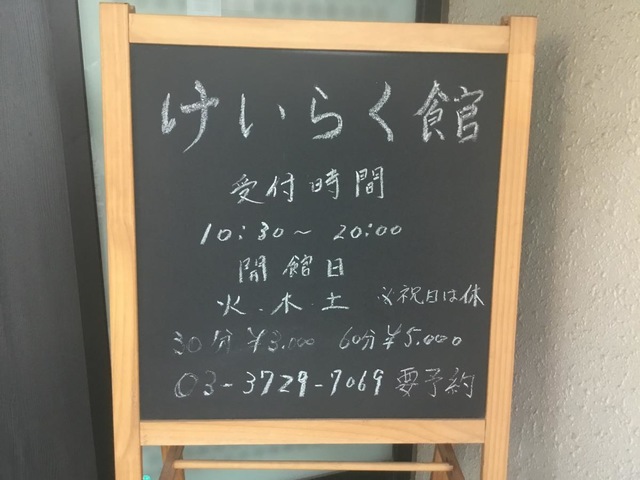 けいらく館
受付時間
10:30～20:00
開館日
火.木.土 ※祝日は休
30分 ¥3.000 60分 ¥5.000
03-3729-7069 要予約